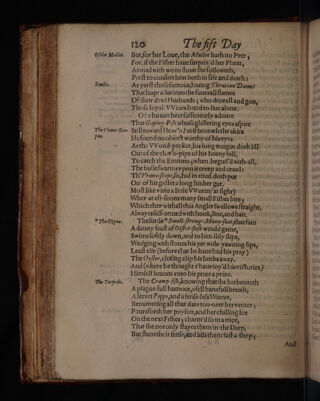 120 The fift Day
Ofthe Mullet.
But, for her Loue, the Mullet hath no Peer;
For, if the Fisher haue surpris'd her Pheer,
As mad with wo to shoar she followeth,
Prest to consort him both in life and death:
Simile.
As yerst those famous, louing Thracian Dames
That leapt aliue into the funerall flames
Of their dead Husbands; who deceast and gon,
Those loyal VViues hated to liue alone.
O! who can heer sufficiently admire
That Gaping-Fish whose glistering eyes aspire
The Vrano-Sco-
pus.
Still toward Heav'n? as if beneath the skies
He found no obiect worthy of his eyes.
As the VVood-pecker, his long tongue doth lill
Out of the clov'n-pipe of his horny bill,
To catch the Emmets; when, beguil'd with-all,
The busie swarms vpon it creep and craul:
Th' Vrano-scope, so, hid in mud doth put
Out of his gullet a long limber gut,
Most like vnto a little VVorm (at sight)
Wher-at eft-soons many small Fishes bite;
Which ther-withall this Angler swallows straight,
Alwayes self-armed with hook, line, and bait.
*The Ozena.
The suttle * Smell-strong-Many-foot, that fain
A dainty feast of Oister-flesh would gaine,
Swims softly down, and to him slily slips,
Wedging with stones his yet wide-yawning lips,
Least else (before that he haue had his pray)
The Oyster, closing, clip his limbs away,
And (where he thought t'haue ioy'd his victories)
Himself becom vnto his prize a prize.
The Torpedo.
The Cramp-fish, knowing that she harboureth
A plague-full humour, a fell banefull breath,
A secret Poppy, and a sense-less Winter,
Benumming all that dare too-neer her venter;
Pours forth her poyson, and her chilling Ice
On the next Fishes; charm'd so in a trice,
That she not only stayes them in the Deep,
But stuns their sense, and lulls them fast a-sleep;
And